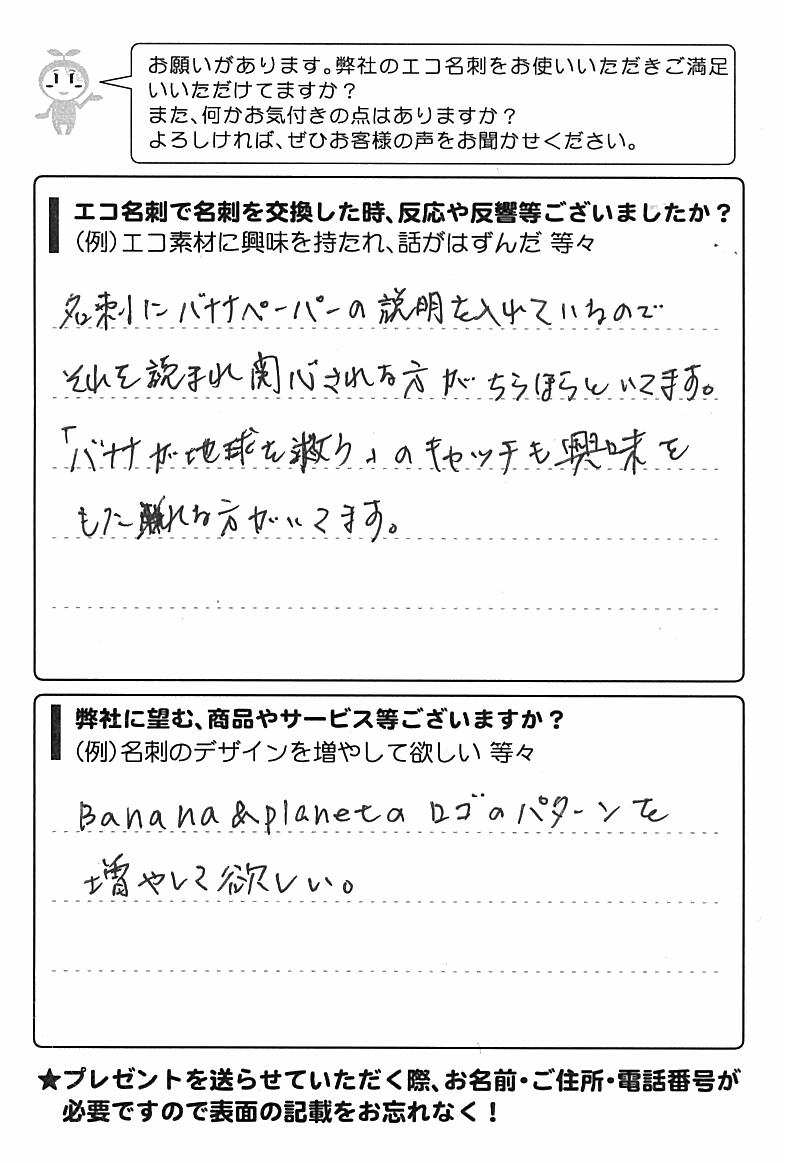 お願いがあります。弊社のエコ名刺をお使いいただきご満足
いいただけてますか?
また、何かお気付きの点はありますか?
よろしければ、ぜひお客様の声をお聞かせください。
エコ名刺で名刺を交換した時、反応や反響等ございましたか?
(例)エコ素材に興味を持たれ、話がはずんだ 等々
名刺にバナナペーパーの説明を入れているので
それを読まれ関心される方がちらほらといてます。
「バナナが地球を救う」のキャッチも興味を
もたれる方がいてます。
弊社に望む、商品やサービス等ございますか?
(例)名刺のデザインを増やして欲しい 等々
Banana&planetのロゴのパターンを
増やして欲しい。
★プレゼントを送らせていただく際、お名前・ご住所・電話番号が
必要ですので表面の記載をお忘れなく!